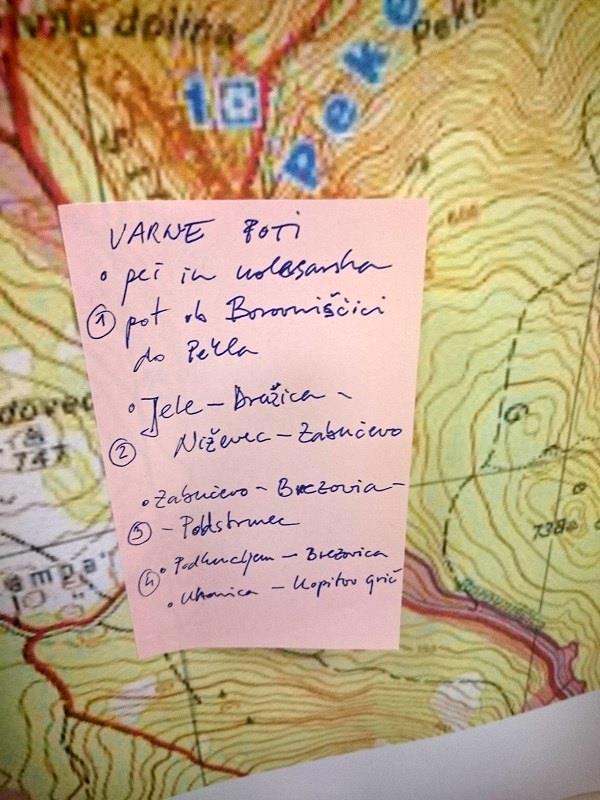 vna dolina
Peko
1
Peko
VARNE POTI
• peš in kolesarska
① pot ob Borovniščici
do Pekla
• Jele - Dražica -
② Niževec - Zabočevo
• Zabočevo - Brezovica -
③ - Pddstrmec
④ • Podhruljem - Brezovica
• Ohonica - Kopitov grič
dovec
747
ampa
738